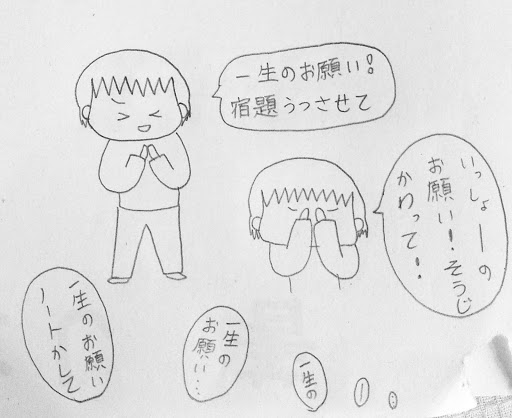 一生のお願い!!
宿題うつさせて
いっしょーの
お願い!そうじ
かわって!
一生のお願い
ノートかして
一生の
お願い…
一生の